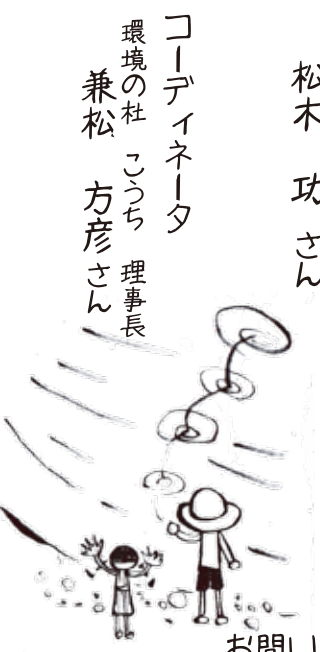 松木 功 さん
コーディネータ
環境の杜 こうち 理事長
兼松 方彦 さん
お問い